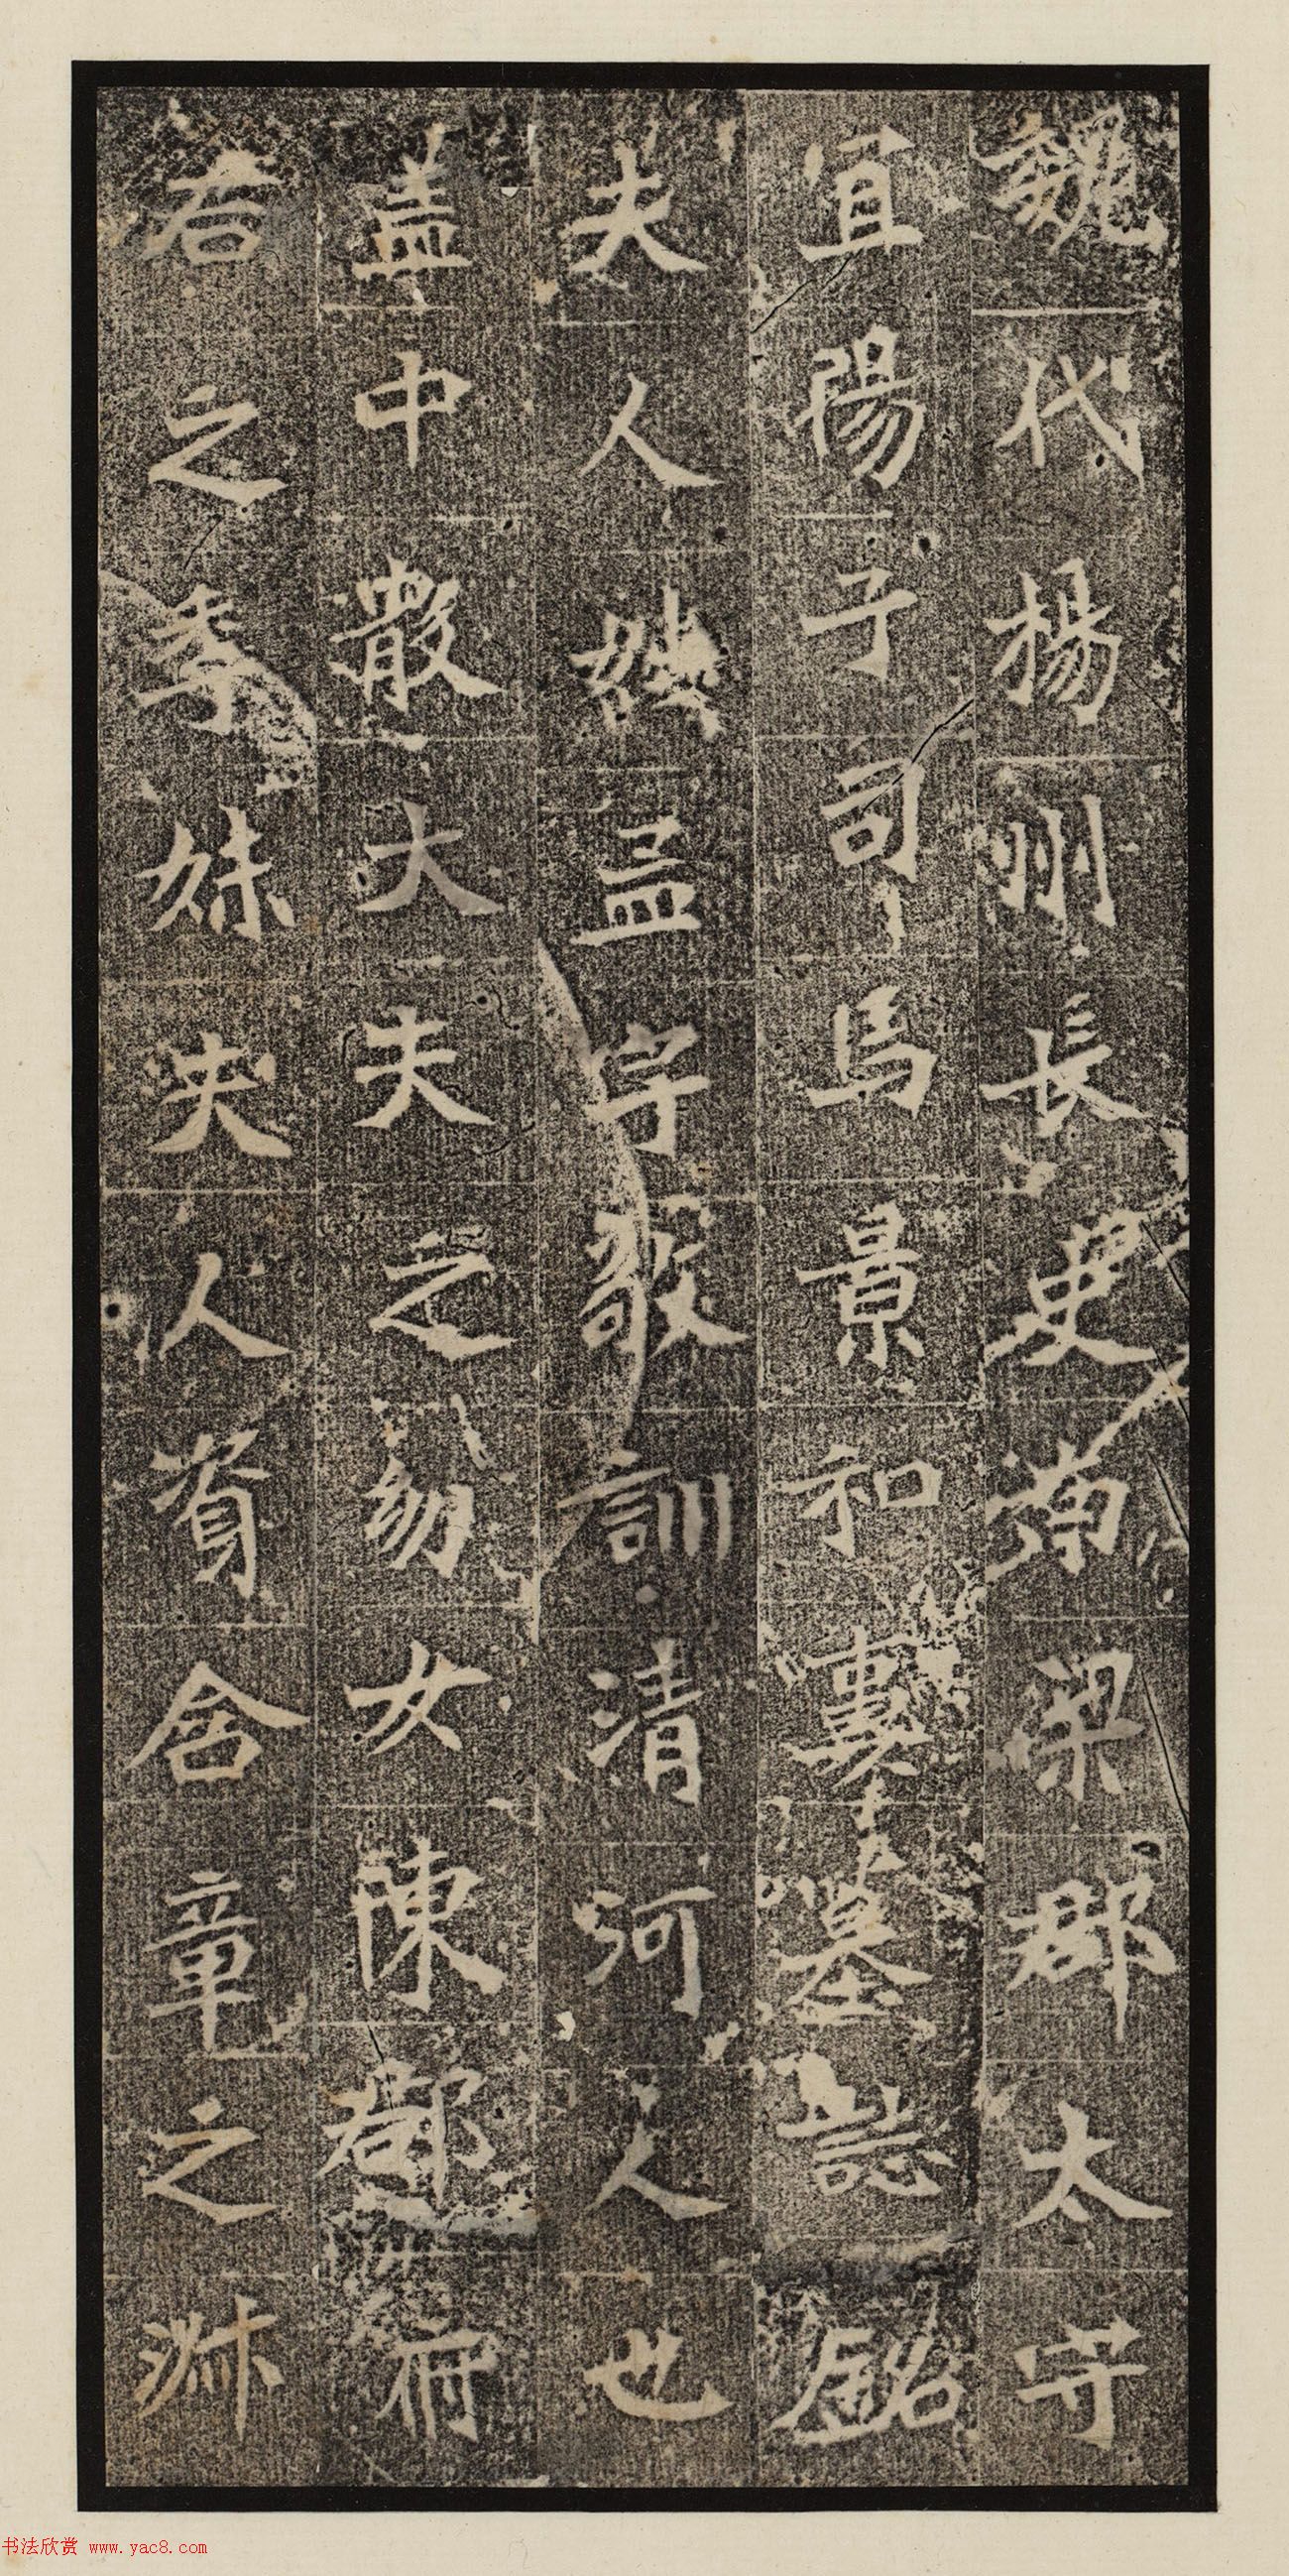 魏代楊州長史南梁郡太守
宜陽子司馬景和妻墓誌銘
夫人姓孟字敬訓清河人也
盖中散大夫之幼女陳郡府
君之季妹夫人資含章之淑
书法欣赏 www.yac8.com